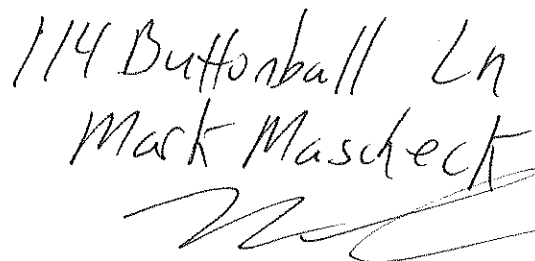 114 Buttonball Ln
Mark Mascheck